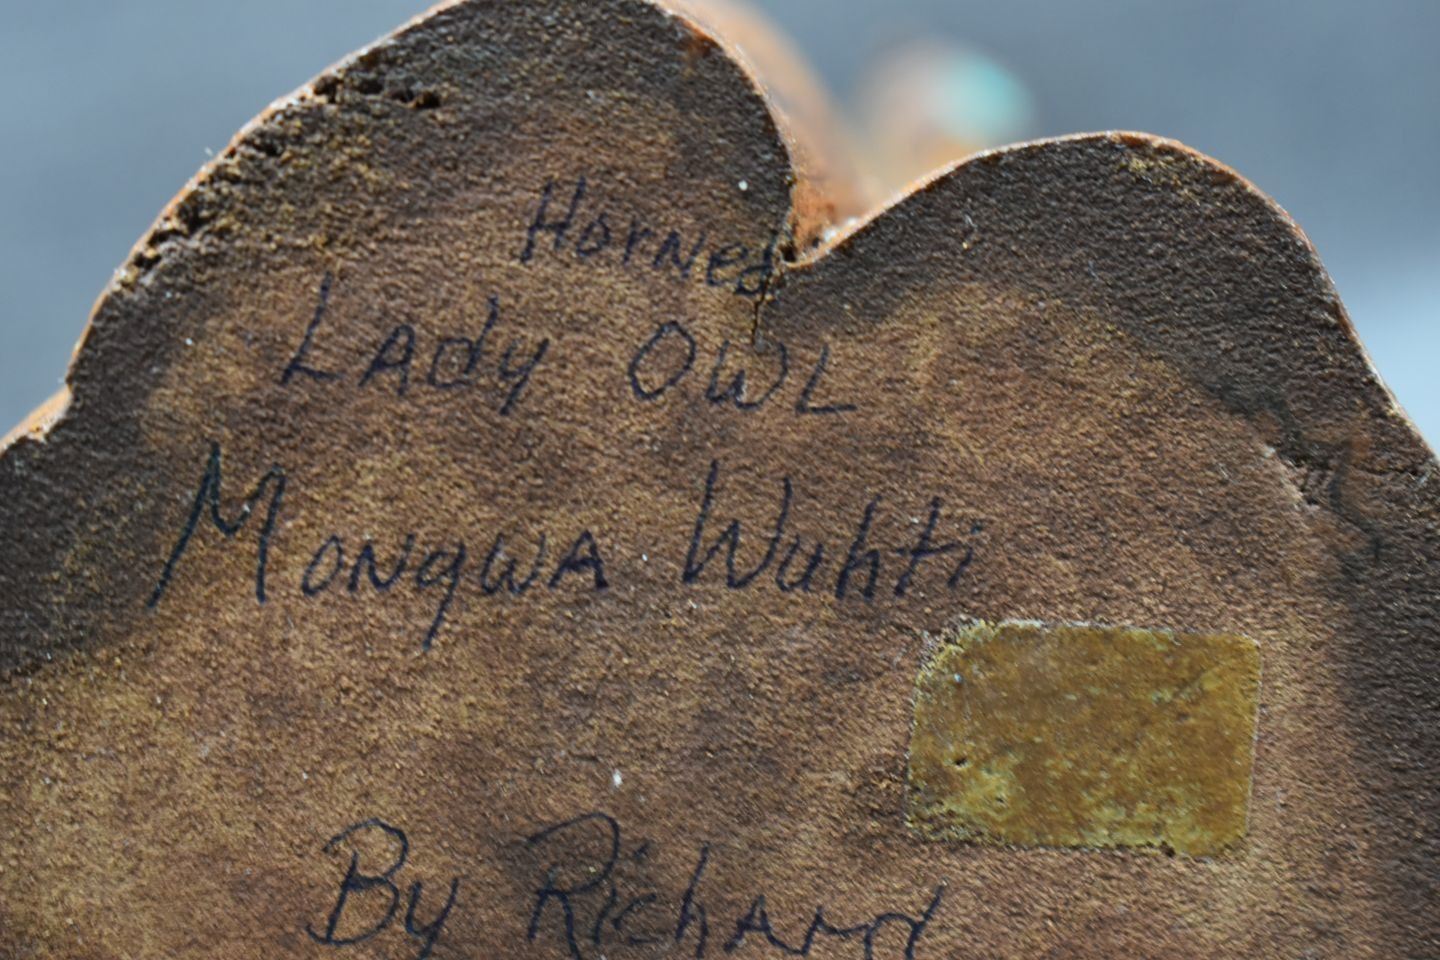 Horned
Lady Owl
Mongwa Wuhti
By Richard